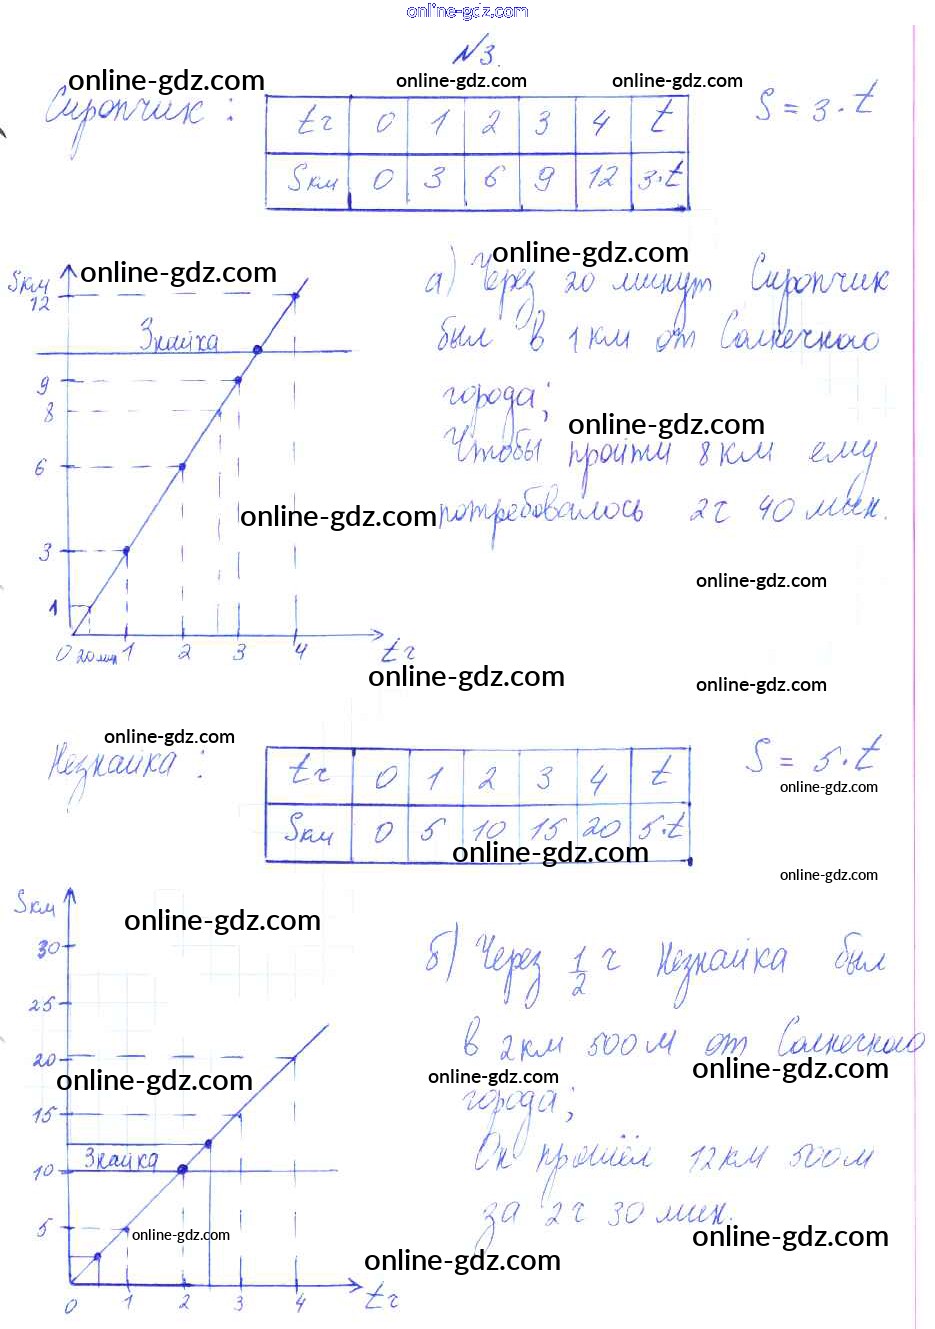 online-gdz.com
№3.
online-gdz.com online-gdz.com online-gdz.com
Сиропчик: tг 0 1 2 3 4 t S = 3·t
Sкм 0 3 6 9 12 3·t
online-gdz.com
online-gdz.com
Sкм
12
Знайка
9
8
6
3
1
0 20 мин 1 2 3 4 tг
а) Через 20 минут Сиропчик
был в 1 км от Солнечного
города;
online-gdz.com
Чтобы пройти 8 км ему
online-gdz.com
потребовалось 2 г 40 мин.
online-gdz.com
online-gdz.com
online-gdz.com
online-gdz.com
Незнайка: tг 0 1 2 3 4 t S = 5·t
online-gdz.com
Sкм 0 5 10 15 20 5·t
online-gdz.com
online-gdz.com
Sкм
online-gdz.com
30
25
20
online-gdz.com
15
Знайка
10
5
online-gdz.com
0 1 2 3 4 tг
б) Через 1/2 г Незнайка был
в 2 км 500 м от Солнечного
online-gdz.com online-gdz.com
города;
Он прошёл 12 км 500 м
за 2 г 30 мин.
online-gdz.com
online-gdz.com